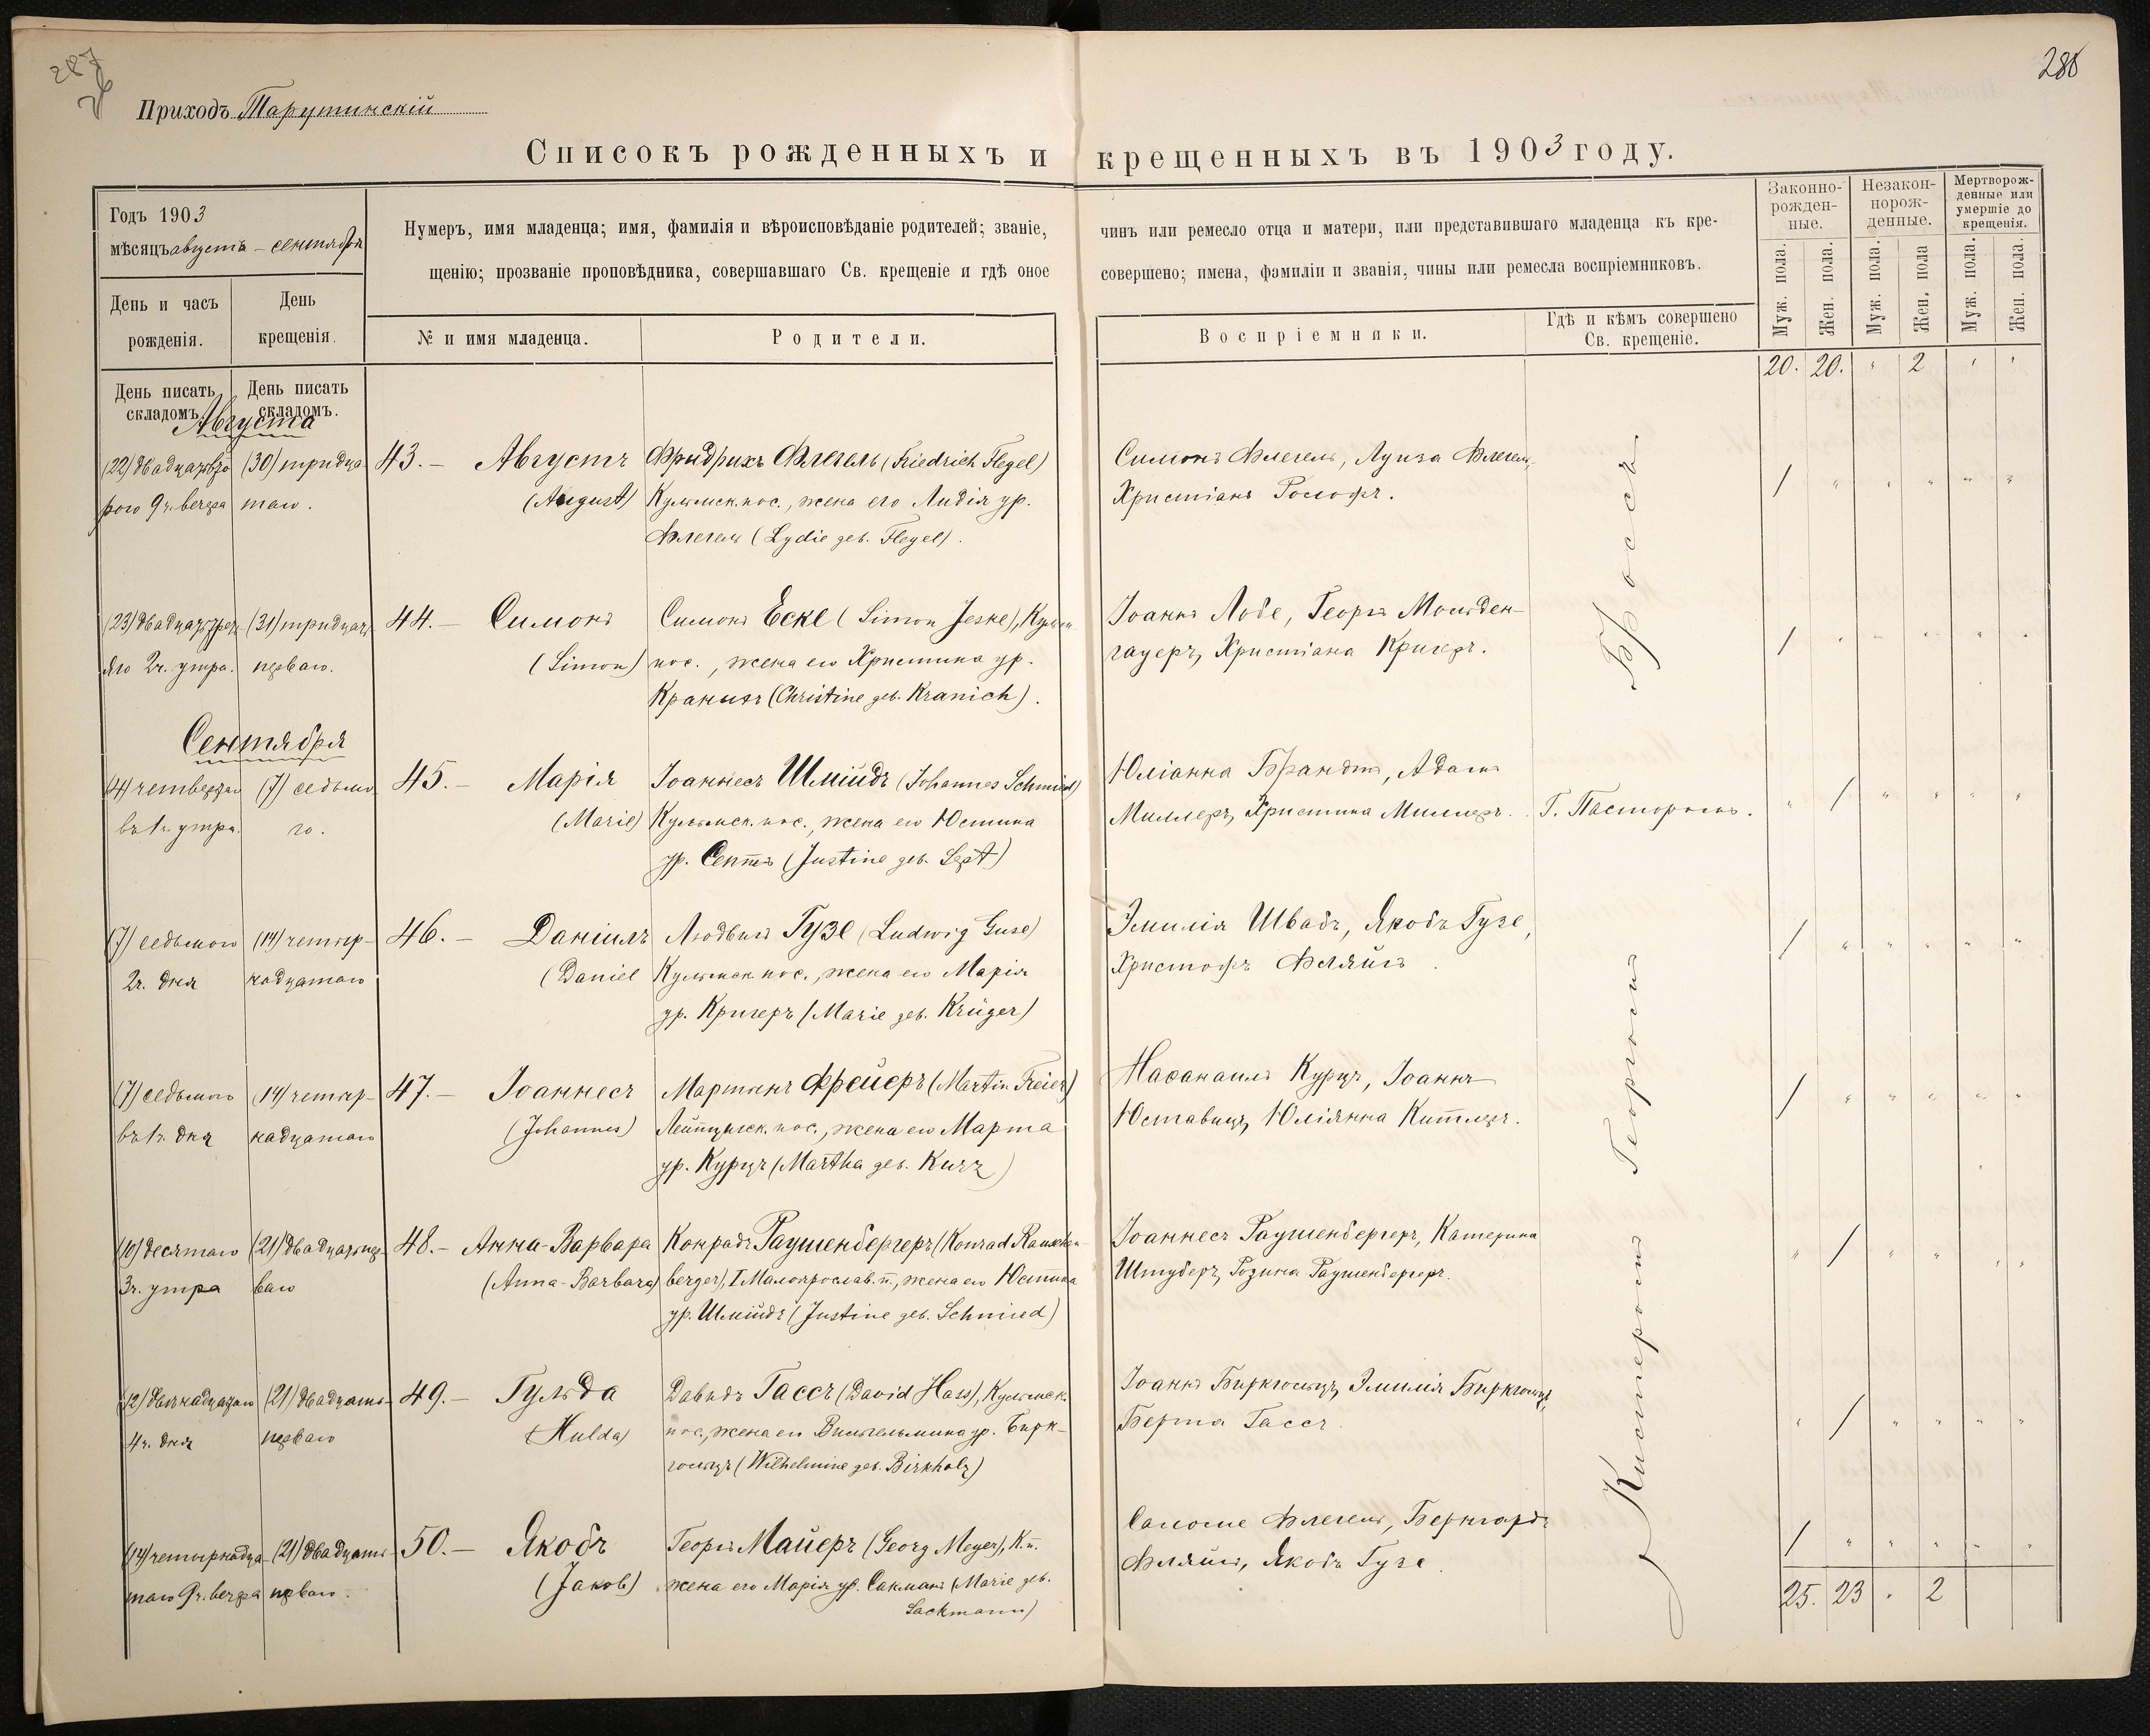 287
Приходъ Тарутинскій
286
Списокъ рожденныхъ и крещенныхъ въ 1903 году.
Годъ 1903
мѣсяцъ августъ – сентября
День и часъ
рожденія.
День
крещенія.
Нумеръ, имя младенца; имя, фамилія и вѣроисповѣданіе родителей; званіе,
щенію; прозваніе проповѣдника, совершавшаго Св. крещеніе и гдѣ оное
№ и имя младенца.
Родители.
чинъ или ремесло отца и матери, или представившаго младенца къ кре-
совершено; имена, фамиліи и званія, чины или ремесла воспріемниковъ.
Воспріемники.
Гдѣ и кѣмъ совершено
Св. крещеніе.
Законно-
рожден-
ные.
Незакон-
норож-
денные.
Мертворож-
денные или
умершіе до
крещенія.
Муж. пола.
Жен. пола.
Муж. пола.
Жен. пола
Муж. пола.
Жен. пола.
20. 20. " 2 " "
День писать
складомъ.
День писать
складомъ.
Августа
(22) двадцать вто
раго 9 ч. вечера
(30) тридца
таго.
43. – Августъ
(August)
Фридрихъ Флегель (Friedrich Flegel)
Кульмск. пос., жена его Лидія ур.
Флегель (Lydie geb. Flegel).
Симонъ Флегель, Луиза Флегель,
Христіанъ Рологръ.
1 " " " " "
(23) двадцать треть
яго 2 ч. утра.
(31) тридцать
перваго.
44. – Симонъ
(Simon)
Симонъ Еске (Simon Jeske), Кульм
пос., жена его Христина ур.
Кранихъ (Christine geb. Kranich).
Іоаннъ Лобе, Георгъ Мольден-
гауеръ, Христіана Кригеръ.
1 " " " " "
Сентября
(4) четвертаго
въ 1 ч. утра.
(7) седьма
го.
45. – Марія
(Marie)
Іоаннесъ Шмійдъ (Johannes Schmied)
Кульмск. пос., жена его Юстина
ур. Септъ (Justine geb. Sept)
Юліанна Брандтъ, Адамъ
Миллеръ, Христина Миллеръ.
Г. Пасторомъ.
" 1 " " " "
(7) седьмого
2 ч. дня
(14) четыр-
надцатаго
46. – Даніилъ
(Daniel
Людвигъ Гузе (Ludwig Guse)
Кульмск. пос., жена его Марія
ур. Кригеръ (Marie geb. Krüger)
Эмилія Швабъ, Якобъ Гузе,
Христофъ Фляйгъ.
1 " " " " "
(7) седьмого
въ 1 ч. дня
(14) четыр-
надцатаго
47. – Іоаннесъ
(Johannes)
Мартинъ Фрейеръ (Martin Freier)
Лейпцигск. пос., жена его Марта
ур. Курцъ (Martha geb. Kurz)
Наѳанаилъ Курцъ, Іоаннъ
Юставицъ, Юліянна Китлеръ.
1 " " " " "
(10) десятаго
3 ч. утра
(21) двадцать пер-
ваго
48. – Анна-Варвара
(Anna-Barbara)
Конрадъ Раушенбергеръ (Konrad Rauschen
berger), I Малоярослав. п., жена его Юстина
ур. Шмійдъ (Justine geb. Schmied)
Іоаннесъ Раушенбергеръ, Катерина
Штуберъ, Розина Раушенбергеръ.
" 1 " " " "
(12) двѣнадцатаго
4 ч. дня
(21) двадцать-
перваго
49. – Гульда
(Hulda)
Давидъ Гассъ (David Hass), Кульмск.
пос., жена его Вильгельмина ур. Бирк-
гольцъ (Wilhelmine geb. Birkholz)
Іоаннъ Биркгольцъ, Эмилія Биркгольцъ,
Берта Гассъ.
" 1 " " " "
(14) четырнадца
таго 9 ч. вечера
(21) двадцать
перваго.
50. – Якобъ
(Jakob)
Георгъ Майеръ (Georg Meyer), К. п.
жена его Марія ур. Сакманъ (Marie geb.
Sackmann)
Саломе Флегель, Бернгардъ
Фляйгъ, Якобъ Гузе.
1 " " " " "
Кистеромъ Георгомъ Броссъ
25. 23 " 2